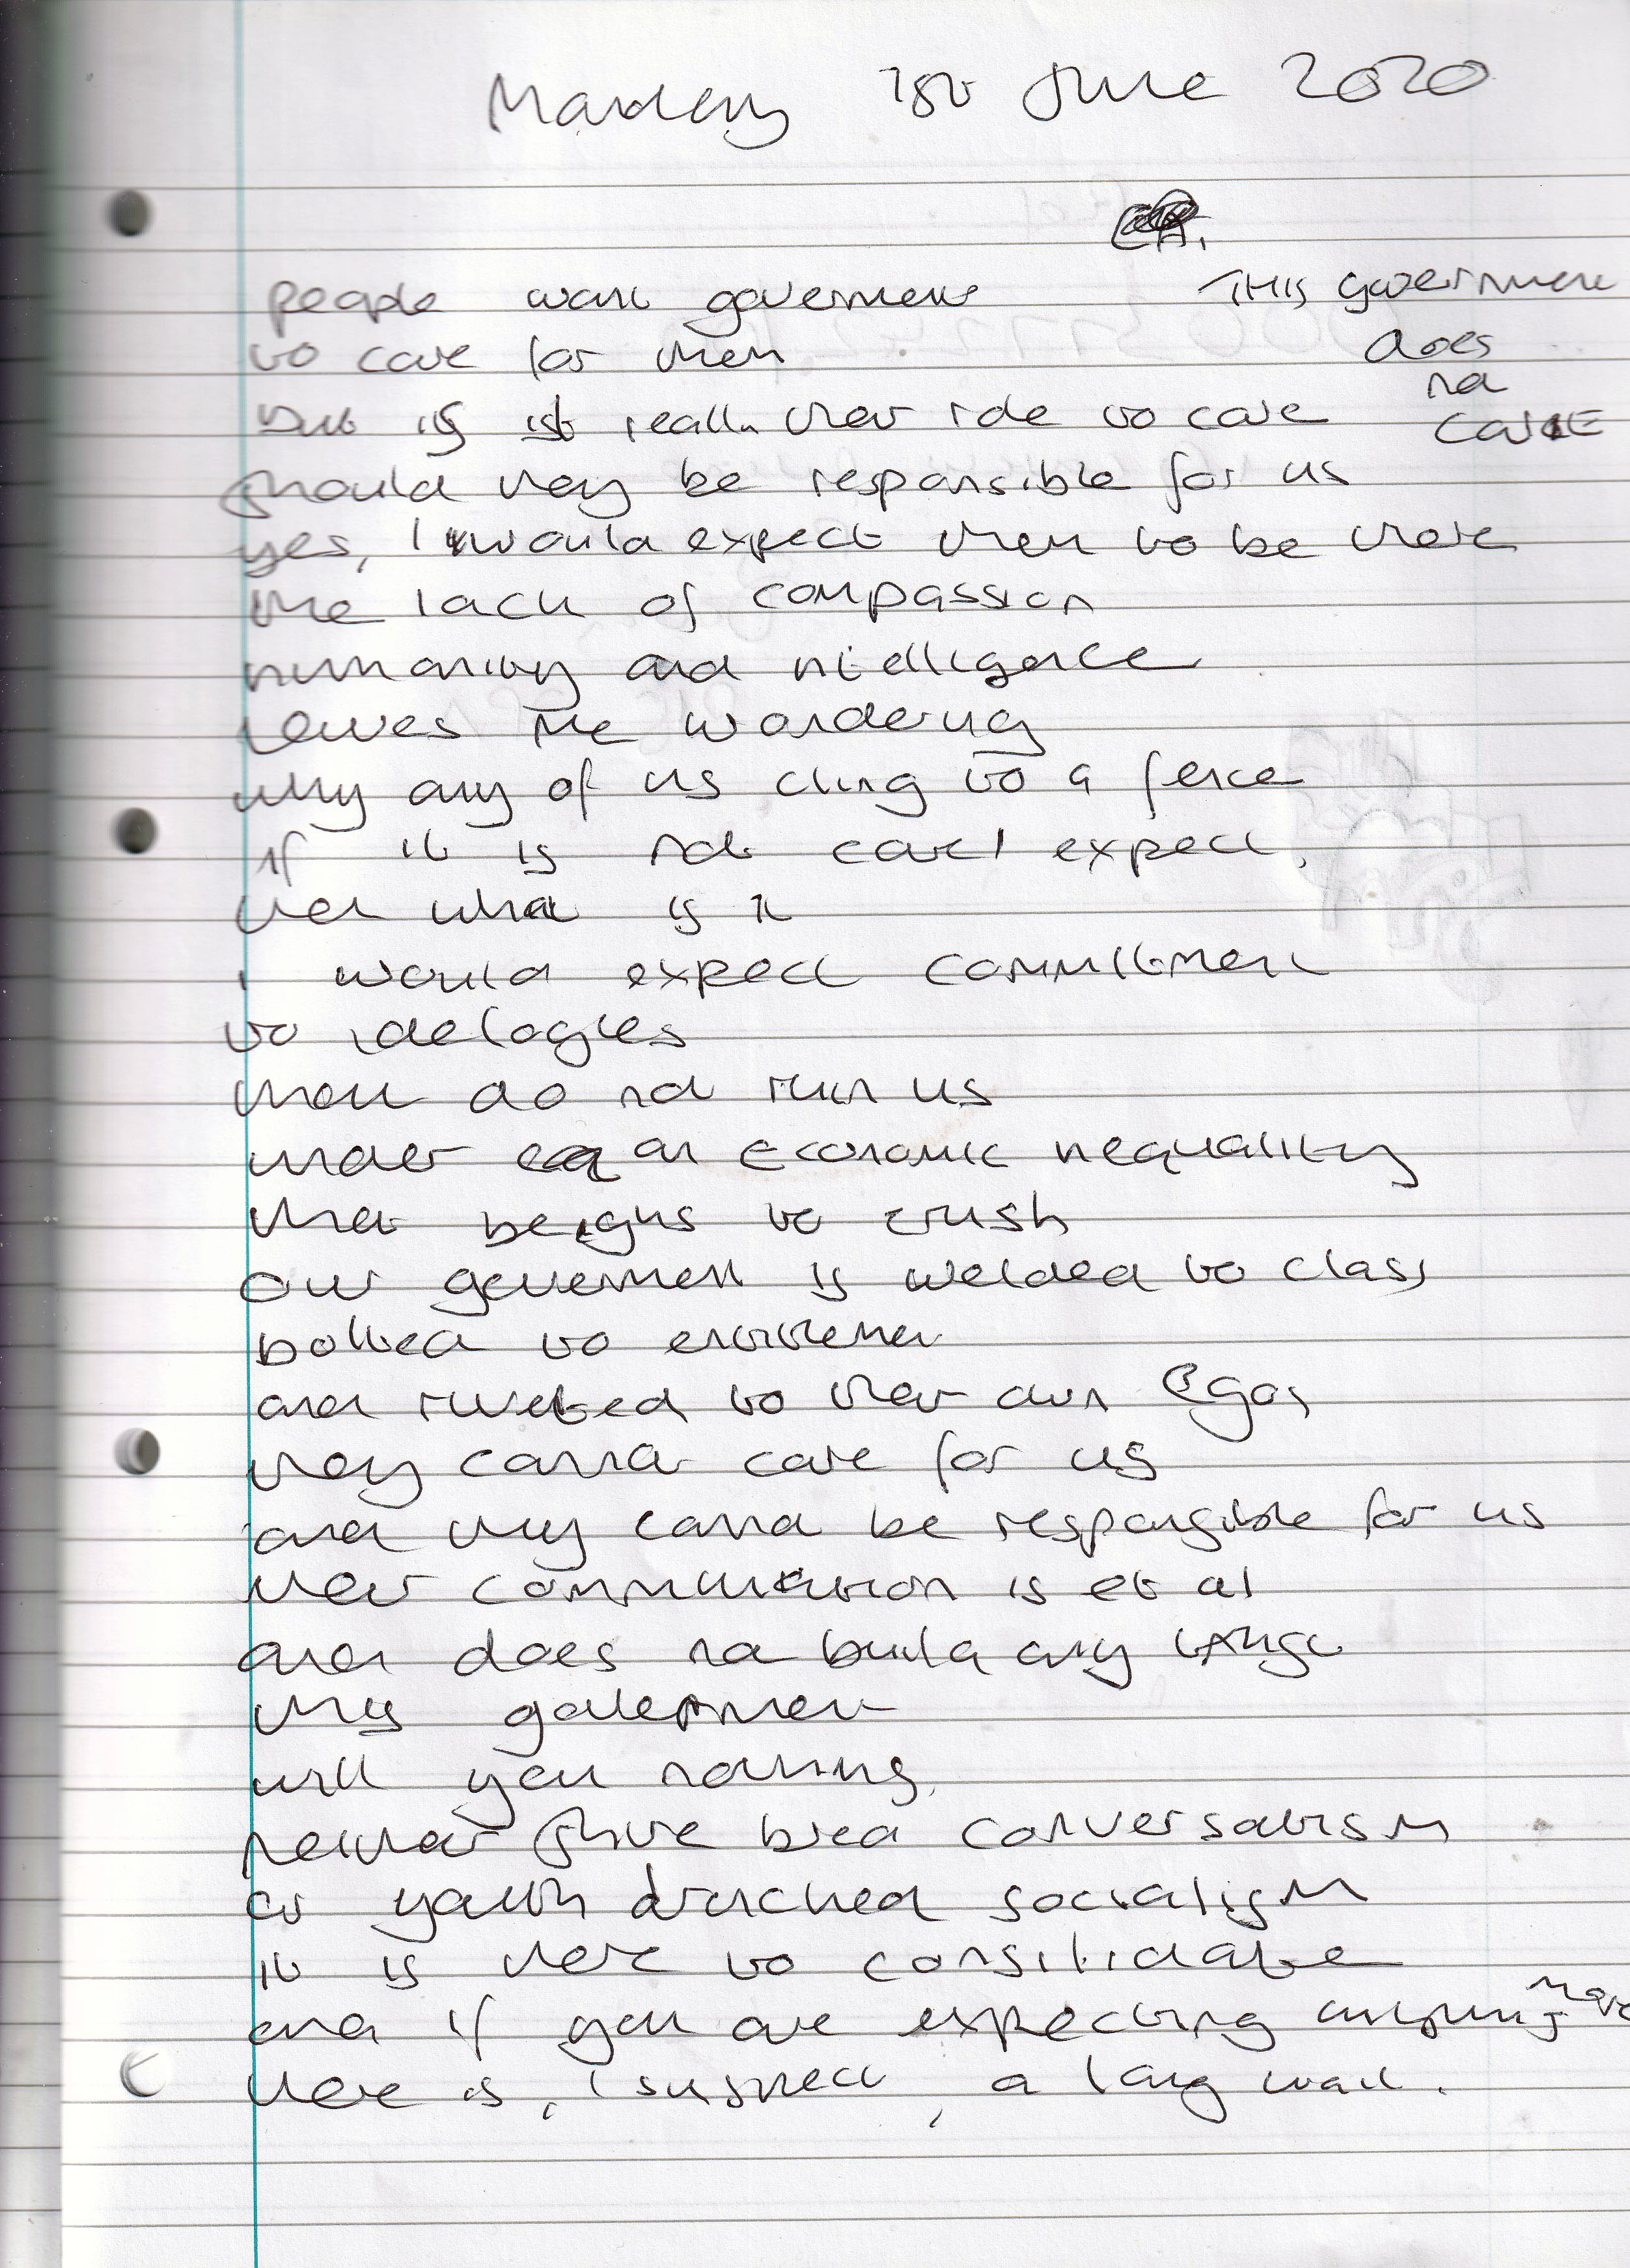 Monday 1st June 2020
THIS government
does
not
care
people want government
to care for them
But is it really their role to care
should they be responsible for us
yes, I would expect them to be there
the lack of compassion
humanity and intelligence
leaves me wondering
why any of us cling to a fence
if it is not care I expect,
then what is it
I would expect commitment
to idelogies
that do not ruin us
under an economic inequality
that beigns to crush
our government is welded to class
bolted to
and riveted to their own egos
they cannot care for us
and they cannot be responsible for us
their is
and does not build any trust
this government
will you nothing
neither bred conversatism
or youth drenched socialism
it is there to consilidate
and if you are expecting anything more
there is, I suspect, a long wait.